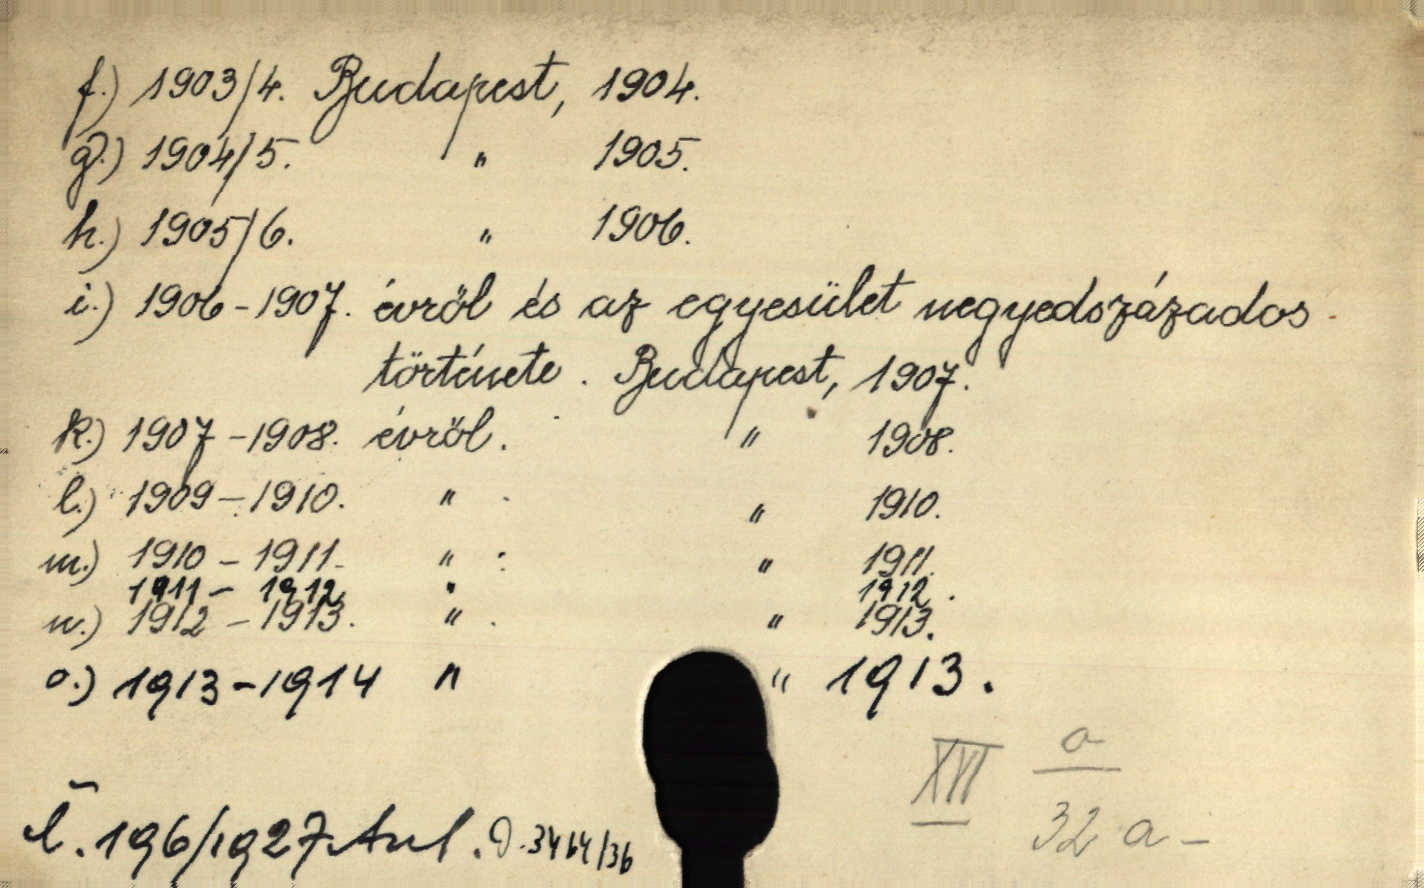 f.) 1903/4. Budapest, 1904.
g.) 1904/5. " 1905.
h.) 1905/6. " 1906.
i.) 1906-1907. évről és az egyesület negyedszázados
története. Budapest, 1907.
k.) 1907-1908. évről. " 1908.
l.) 1909-1910. " . " 1910.
m.) 1910-1911. " . " 1911.
1911-1912. " 1912.
n.) 1912-1913. " . " 1913.
o.) 1913-1914 " " 1913.
XVI a
32 a-
l. 196/1927. 3464/36